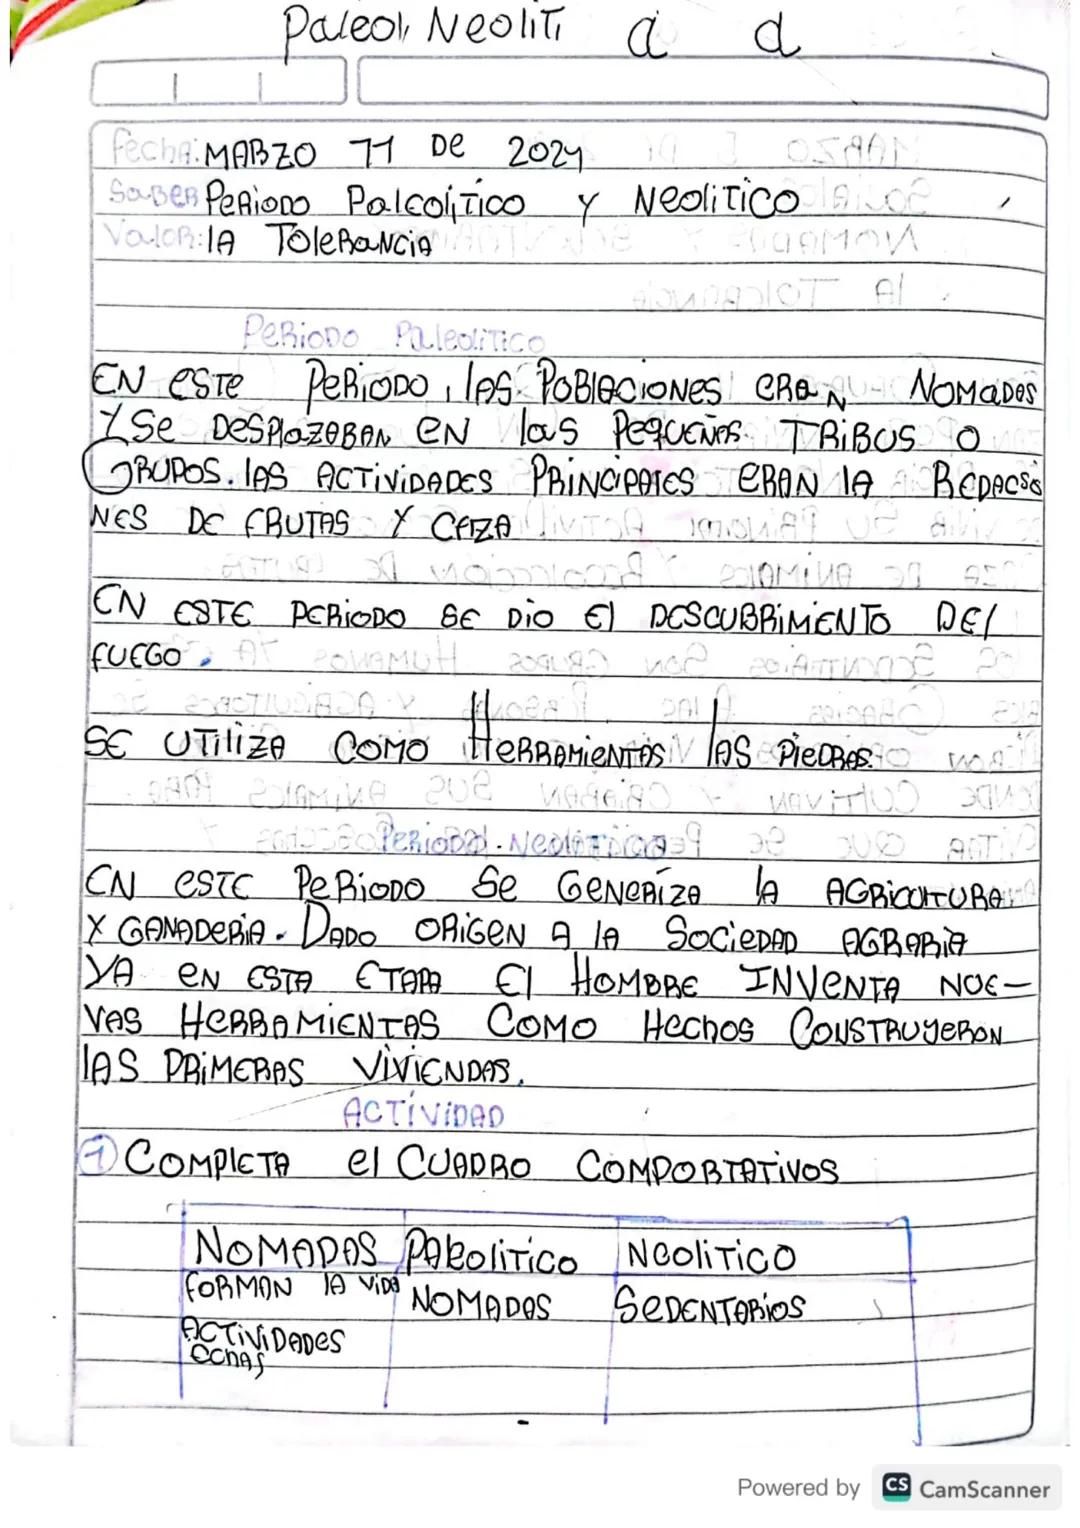 Paleol, Neoliti a d
Fecha: MARZO 11 De 2024
SaBeR PeRioDo Paleolitico y Neolitico
ValoR: lA ToleRaNciA
PeRioDo Paleolitico
EN este PeRioDo, lAS PoBlaciones eRaN Nomades
Y Se DesPlazaBan eN las PequeñAs TRiBUS o
GRUPOS. lAS ACTiViDADeS PRiNCiPAleS eRAN lA RedAcsio
NeS De FRUTAS Y CAZA
EN eSTe PeRioDo Se Dio El DeSCUBRiMieNTo Del
FUeGo.
Se UTiliZA Como HeRRAMieNTAS lAS PieDRAS.
PeRioDo. Neolitico
EN eSTe PeRioDo Se GeNeRiZA lA AGRicultuRA
Y GANADeRiA. DADo oRiGeN A lA SocieDAD AGRARiA
YA eN eSTA eTAPA El HoMBRe INVeNTA NUe-
VAS HeRRAMieNTAS CoMo Hechos CoNSTRUyeRoN
lAS PRiMeRAS ViVieNDAS.
ACTiViDAD
1 CoMPleTA el CUADRo CoMPoRTATiVoS
NoMADAS Paleolitico Neolitico
FoRMAN lA ViDA NoMADAS SeDeNTARioS
ACTiViDADeS
echas
Powered by CS CamScanner